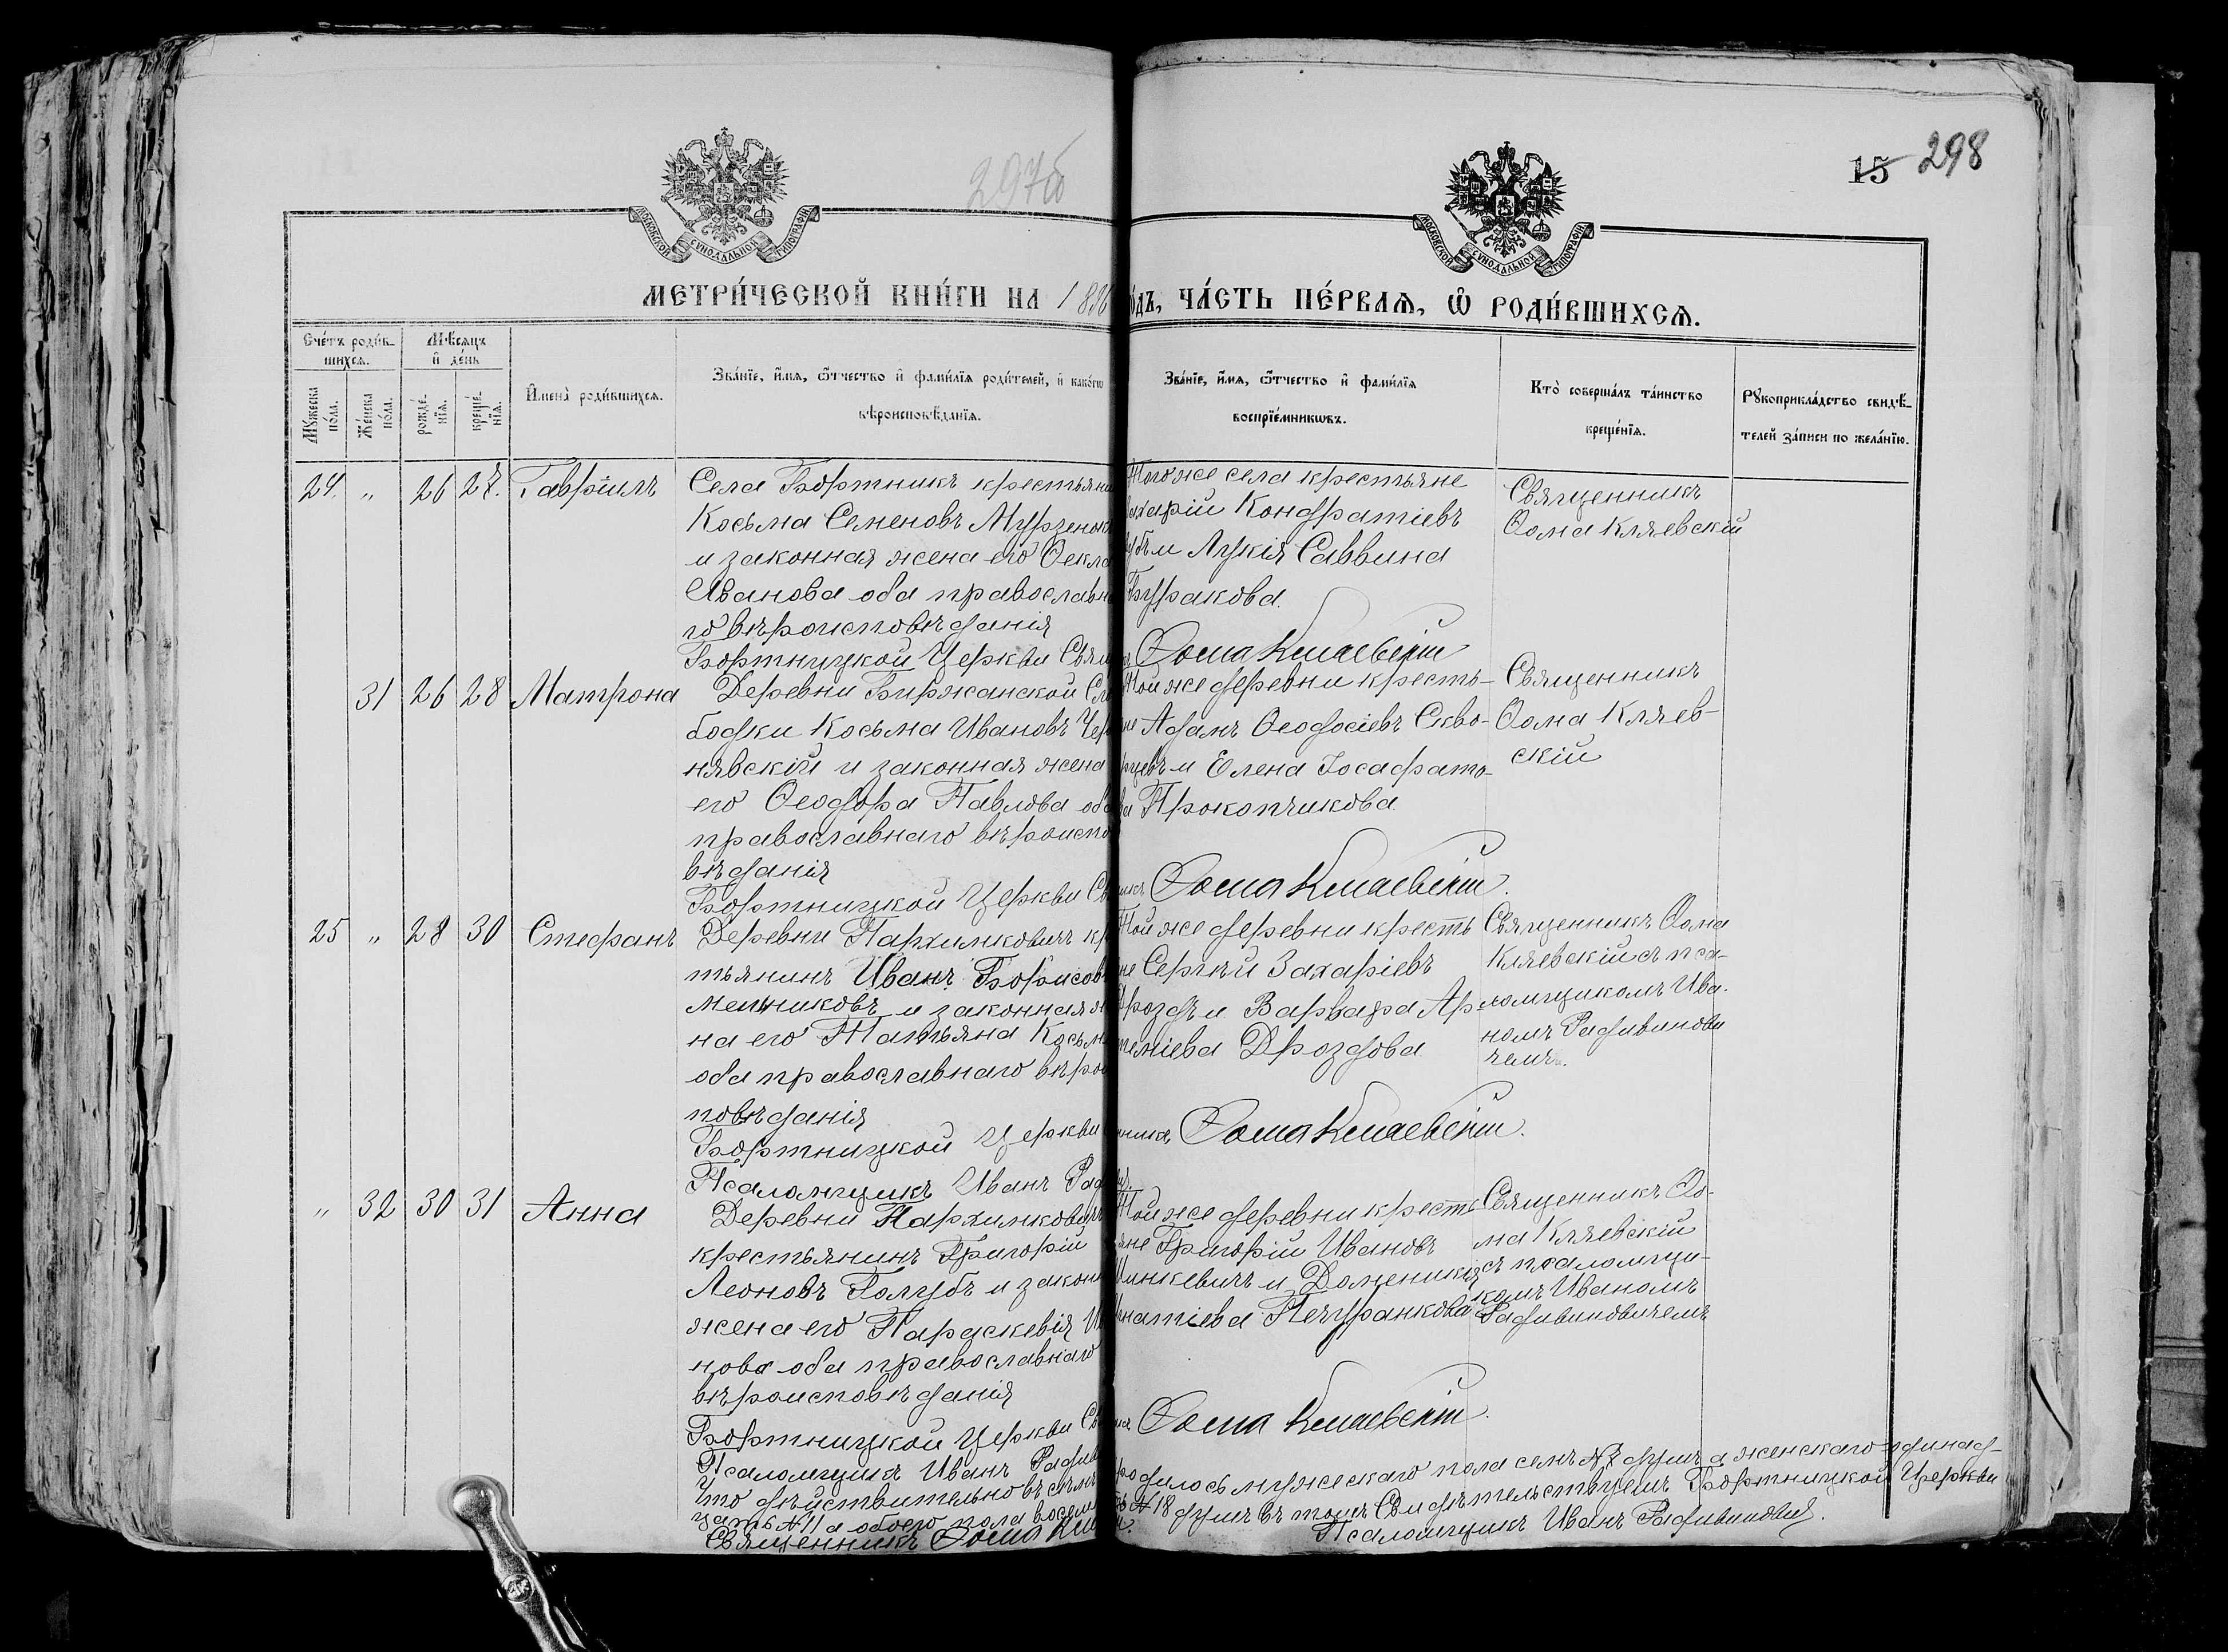 297об
15 298
МОСКОВСКОЙ СѴНОДАЛЬНОЙ ТИПОГРАФІИ
МОСКОВСКОЙ СѴНОДАЛЬНОЙ ТИПОГРАФІИ
МЕТРИ́ЧЕСКОЙ КНИ́ГИ НА 189
о́дъ, ЧА́СТЬ ПЕ́РВАѦ, Ѿ РОДИ́ВШИХСѦ.
Сче́тъ роди́в-
шихсѧ.
Мѣ́сѧцъ
и҆ де́нь
Мꙋ́жеска по́ла.
Же́нска по́ла.
рожде́-
нїѧ.
креще́-
нїѧ.
И҆мена̀ роди́вшихсѧ.
Зва́нїе, и҆́мѧ, ѻ҆́тчество и҆ фами́лїѧ роди́телей, и҆ како́гѡ
вѣроисповѣ́данїѧ.
Зва́нїе, и҆́мѧ, ѻ҆́тчество и҆ фами́лїѧ
воспрїе́мникѡвъ.
Кто̀ соверша́лъ та́инство
креще́нїѧ.
Рꙋкоприкла́дство свидѣ́-
телей за́писи по жела́нїю.
24. " 26 27. Гавріилъ
Села Бортникъ крестьяни
Косьма Семеновъ Мурзенок
и законная жена его Ѳекла
Иванова оба православна
го вѣроисповѣданія
Бортницкой Церкви Свящ
Того же села крестьяне
ахарій Кондратіевъ
убъ и Лукія Саввина
Буракова.
Ѳома Кляевскій
Священникъ
Ѳома Кляевскій
31 26 28 Матрона
Деревни Биржанской Сло
бодки Косьма Ивановъ Чер
нявскій и законная жена
его Ѳеодора Павлова оба
православнаго вѣроиспо
вѣданія
Бортницкой Церкви Св
Той же деревни кресть-
не Адамъ Ѳеодосіевъ Скво-
рцевъ и Елена Іосафато-
ва Прокопчикова
Ѳома Кляевскій.
Священникъ
Ѳома Кляев-
скій
25 " 28 30 Стефанъ
Деревни Пархимковичъ кр
тьянинъ Иванъ Борисов
Мельниковъ и законная ж
на его Татьяна Косьм
оба православнаго вѣрои
повѣданія
Бортницкой Церкви
Псаломщикъ Иванъ Рад
Той же деревни кресть
не Сергѣй Захаріевъ
Дроздъ и Варвара Ар-
теміева Дроздова
Ѳома Кляевскій.
Священникъ Ѳома
Кляевскій съ пса-
ломщикомъ Ива-
номъ Радивинови
чемъ.
" 32 30 31 Анна
Деревни Пархимковичъ
крестьянинъ Григорій
Леоновъ Голубъ и законн
жена его Параскевія И
нова оба православнаго
вѣроисповѣданія
Бортницкой Церкви Св
Псаломщикъ Иванъ Радив
Той же деревни кресть
яне Григорій Ивановъ
Минкевичъ и Доменикія
Игнатіева Печуранкова
Ѳома Кляевскій.
Священникъ Ѳо-
ма Кляевскій
съ псаломщи-
комъ Иваномъ
Радивиновичемъ
Что дѣйствительно въ семъ родилось мужескаго пола семь №7 душъ а женскаго одинад-
цать №11 а обоего пола восемнад №18 душъ въ томъ Свидѣтельствуемъ Бортницкой Церкви
Священникъ Ѳома Кляевскій. Псаломщикъ Иванъ Радивиновичъ.